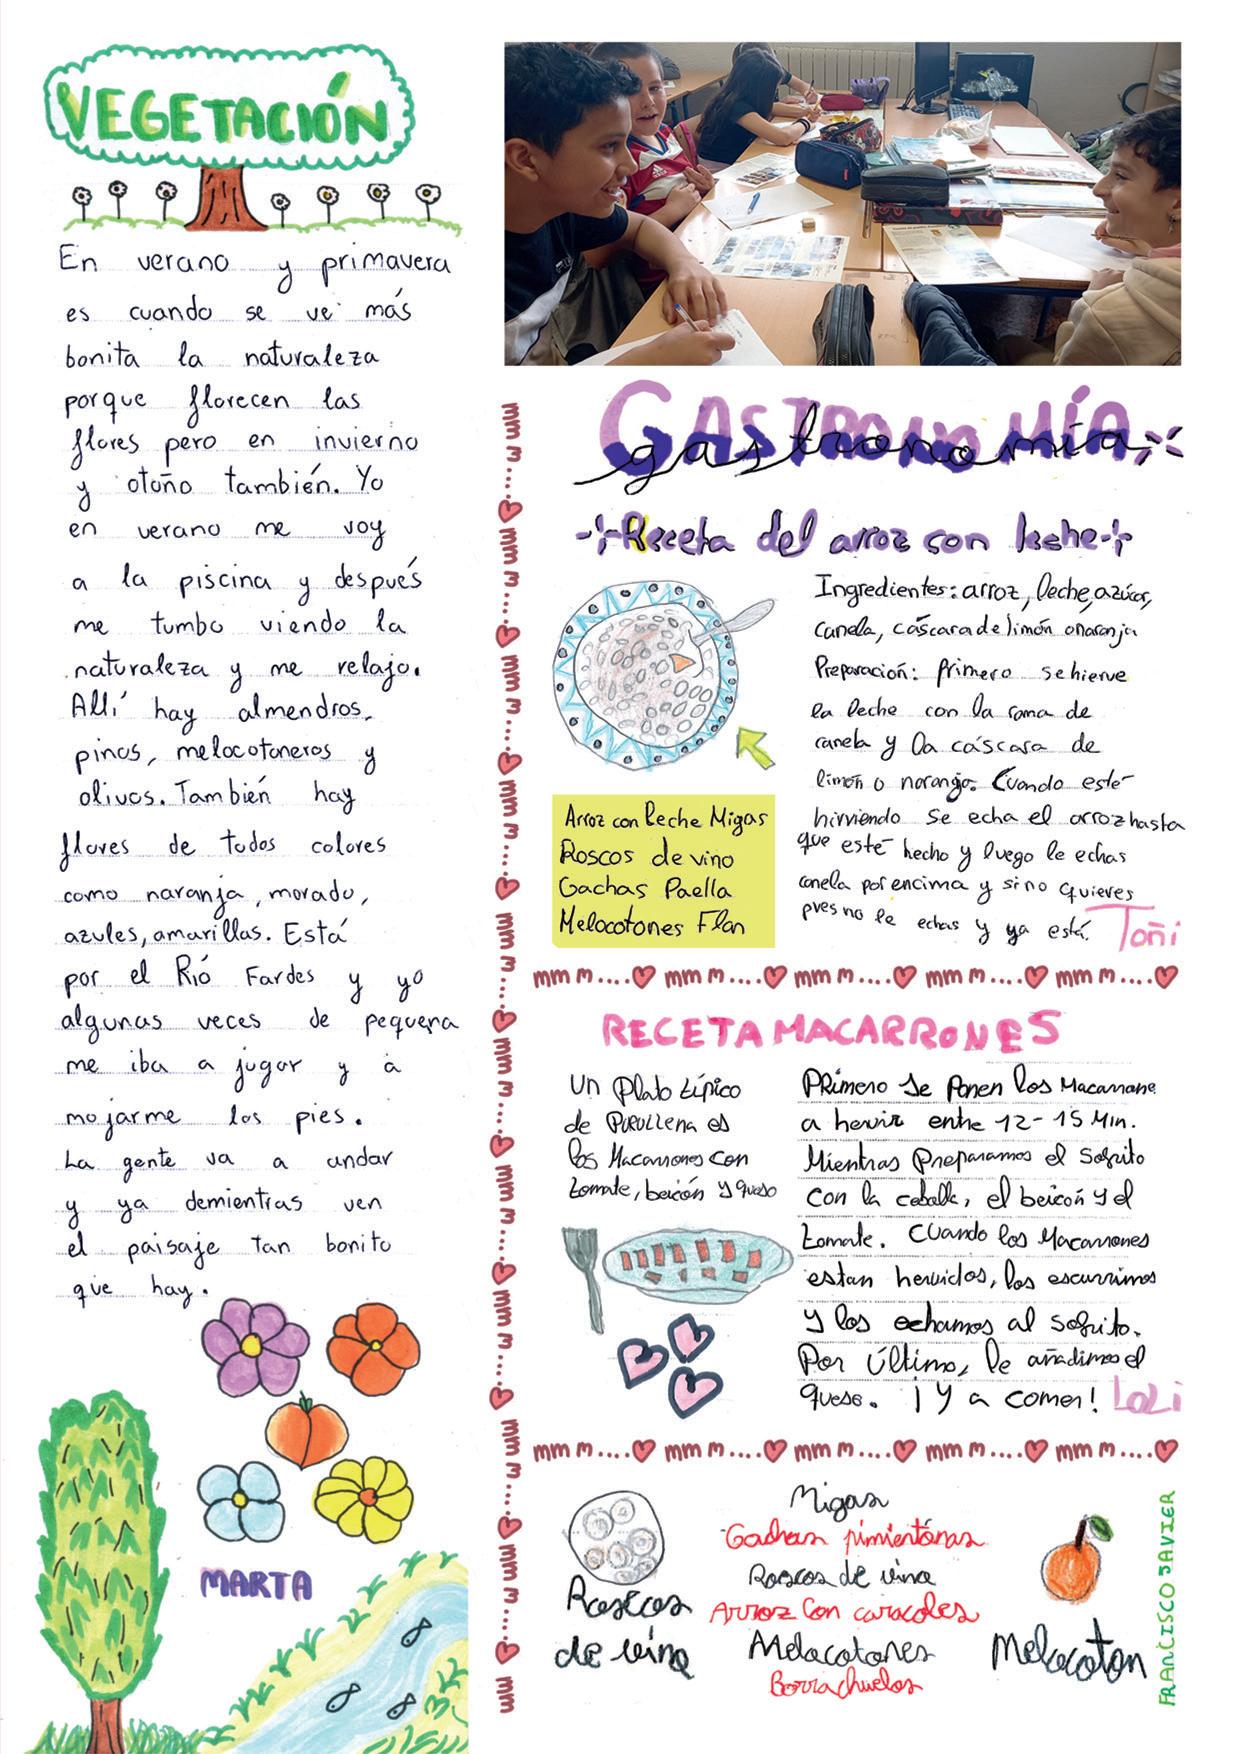 VEGETACIÓN
En verano y primavera
es cuando se ve más
bonita la naturaleza
porque florecen las
flores pero en invierno
y otoño también. Yo
en verano me voy
a la piscina y después
me tumbo viendo la
naturaleza y me relajo.
Allí hay almendros,
pinos, melocotoneros y
olivos. También hay
flores de todos colores
como naranja, morado,
azules, amarillas. Está
por el Rió Fardes y yo
algunas veces de pequeña
me iba a jugar y a
mojarme los pies.
La gente va a andar
y ya demientras ven
el paisaje tan bonito
que hay.
MARTA
GASTRONOMÍA
gastronomía
Receta del arroz con leche
Ingredientes: arroz, leche, azúcar,
canela, cáscara de limón o naranja
Preparación: Primero se hierve
la leche con la rama de
canela y la cáscara de
limón o naranja. Cuando esté
hirviendo se echa el arroz hasta
que esté hecho y luego le echas
canela por encima y si no quieres
pues no le echas y ya está.
Toñi
Arroz con leche Migas
Roscos de vino
Gachas Paella
Melocotones Flan
mm m.... mm m.... mm m.... mm m.... mm m....
RECETA MACARRONES
Un Plato típico
de PURULLENA es
los Macarrones con
tomate, beicón y queso
Primero se Ponen los Macarrone
a hervir entre 12-15 Min.
Mientras Preparamos el Sofrito
con la cebolla, el beicón y el
tomate. Cuando los Macarrones
estan hervidos, los escurrimos
y los echamos al sofrito.
Por último, le añadimos el
queso. ¡Y a comer!
Loli
mm m.... mm m.... mm m.... mm m.... mm m....
Roscos
de vino
Migas
Gachas pimientonas
Roscos de vino
Arroz con caracoles
Melocotones
Borrachuelos
Melocoton
FRANCISCO JAVIER
mm m.... mm m.... mm m.... mm m.... mm m.... mm m.... mm m.... mm m.... mm m.... mm m.... mm